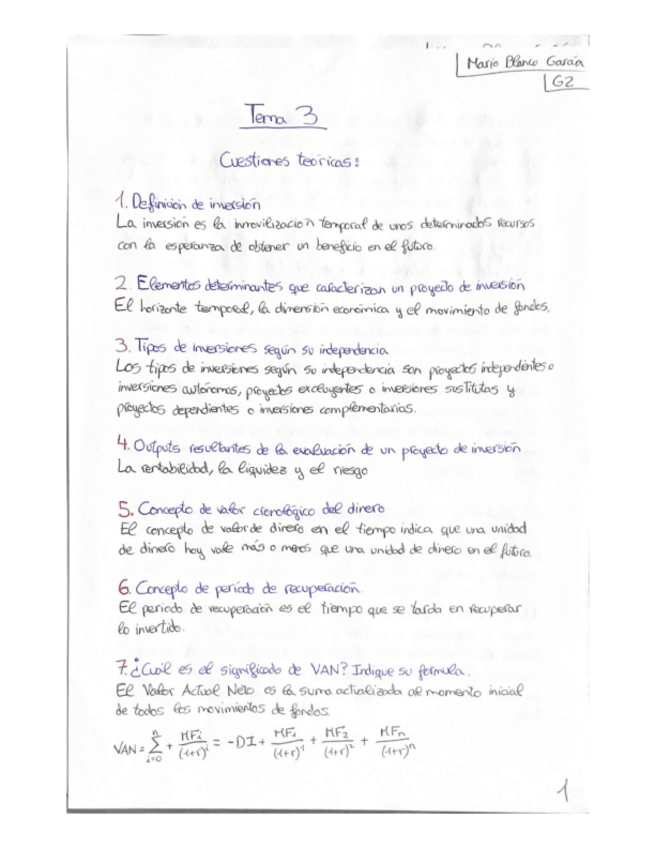 Mario Blanco García
G2
Tema 3
Cuestiones teóricas:
1. Definición de inversión
La inversión es la inmovilización temporal de unos determinados recursos
con la esperanza de obtener un beneficio en el futuro.
2. Elementos determinantes que caracterizan un proyecto de inversión
El horizonte temporal, la dimensión económica y el movimiento de fondos.
3. Tipos de inversiones según su independencia
Los tipos de inversiones según su independencia son proyectos independientes o
inversiones autónomas, proyectos excluyentes o inversiones sustitutas y
proyectos dependientes o inversiones complementarias.
4. Outputs resultantes de la evaluación de un proyecto de inversión
La rentabilidad, la liquidez y el riesgo
5. Concepto de valor cronológico del dinero
El concepto de valor de dinero en el tiempo indica que una unidad
de dinero hoy vale más o menos que una unidad de dinero en el futuro.
6. Concepto de periodo de recuperación.
El periodo de recuperación es el tiempo que se tarda en recuperar
lo invertido.
7. ¿Cuál es el significado de VAN? Indique su formula.
El Valor Actual Neto es la suma actualizada al momento inicial
de todos los movimientos de fondos.
VAN = n∑i=0 + MFi/(1+r)^i = -DI + MF1/(1+r)^1 + MF2/(1+r)^2 + MFn/(1+r)^n
1